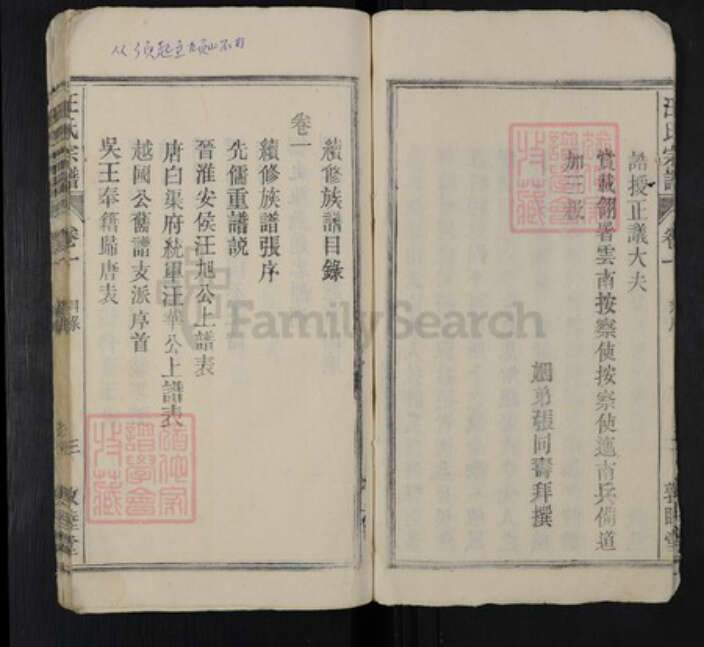 誥授正議大夫
賞戴翎署雲南按察使按察使迤南兵備道
加三級
姻弟張同壽拜撰
汪氏宗譜
卷一
敦睦堂
續修族譜目錄
卷一
續修族譜張序
先儒重譜說
晉淮安侯汪旭公上譜表
唐白渠府統軍汪華公上譜表
越國公舊譜支派序首
吳王奉籍歸唐表
汪氏宗譜
卷一
目錄
三
敦睦堂
譜學會
特藏
FamilySearch